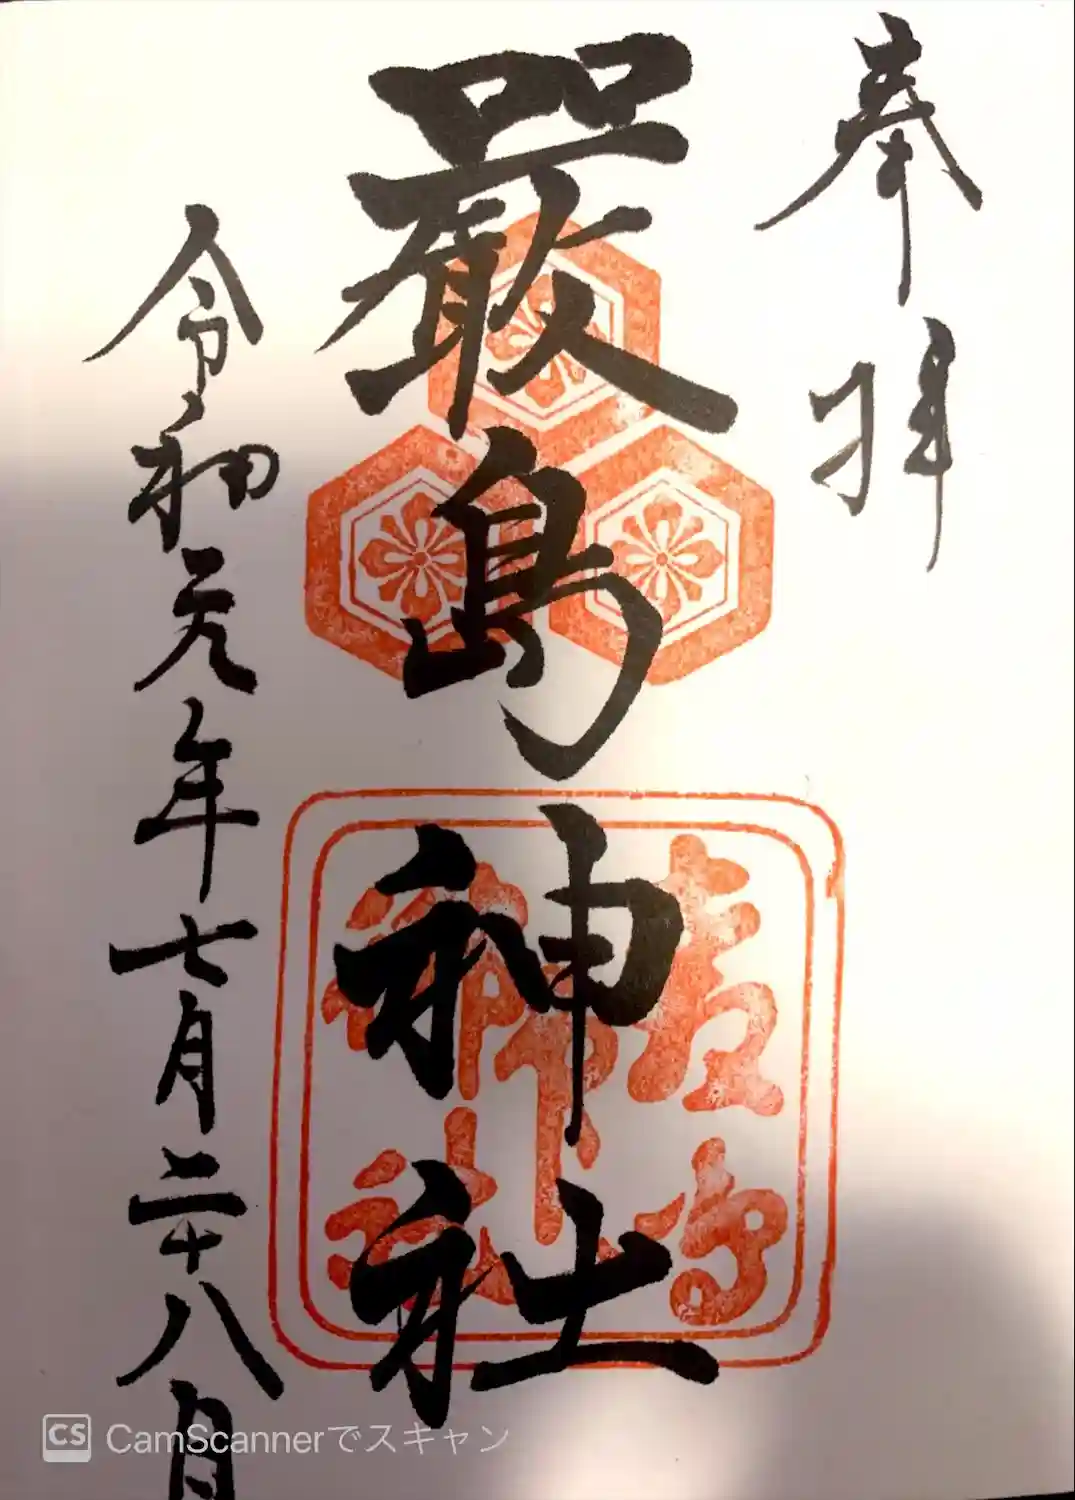 奉拝
厳島神社
令和元年七月二十八日
CS CamScannerでスキャン